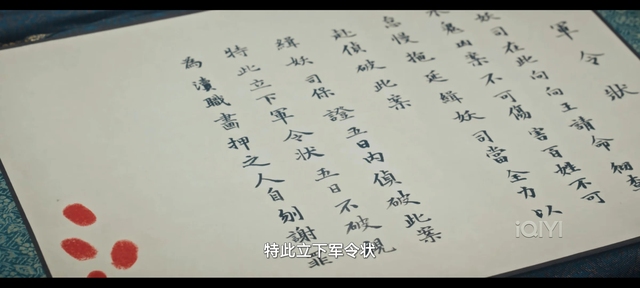 軍令狀
妖司在此向向王請命細查
鬼凶案不可傷害百姓不可
怠慢拖延緝妖司當全力以
赴偵破此案
緝妖司保證五日內偵破此案
特此立下軍令狀五日不破視
為瀆職畫押之人自刎謝罪
特此立下军令状
iQIYI